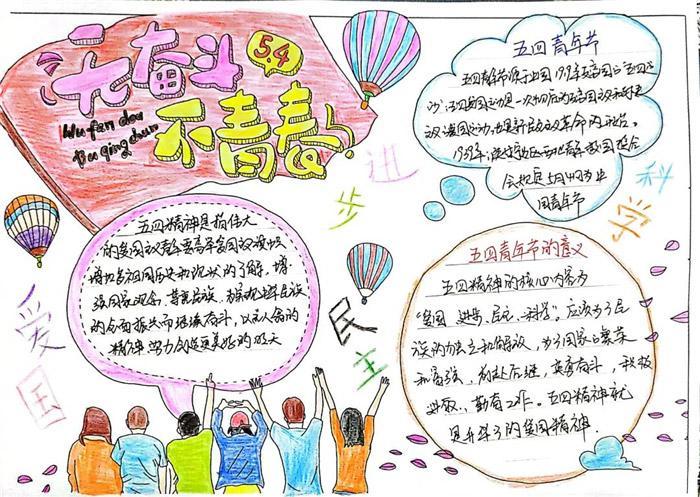 无奋斗
5.4
Wu fen dou
Bu qing chun
不青春
进
步
五四青年节
五四青年节源于中国1919年反帝的"五四运
动",五四爱国运动是一次彻底的反帝国主义和封建
主义爱国运动,也是新民主主义革命的开始。
1939年,陕甘宁边区西北青年救国联合
会规定5月4日为中
国青年节
科
学
五四精神是指伟大
的爱国主义
增加各祖国历史和现状的了解,增
强国家观念,
的全面振兴而顽强奋斗,以无人会的
精神,努力创造更美好的明天
爱
国
民
主
五四青年节的意义
五四精神的核心内容为
"爱国、进步、民主、科学"。应该为了民
族的独立和解放,为了国家的繁荣
和富强,前赴后继,英勇奋斗,积极
进取,勤奋工作。五四精神就
是升华了的爱国精神.